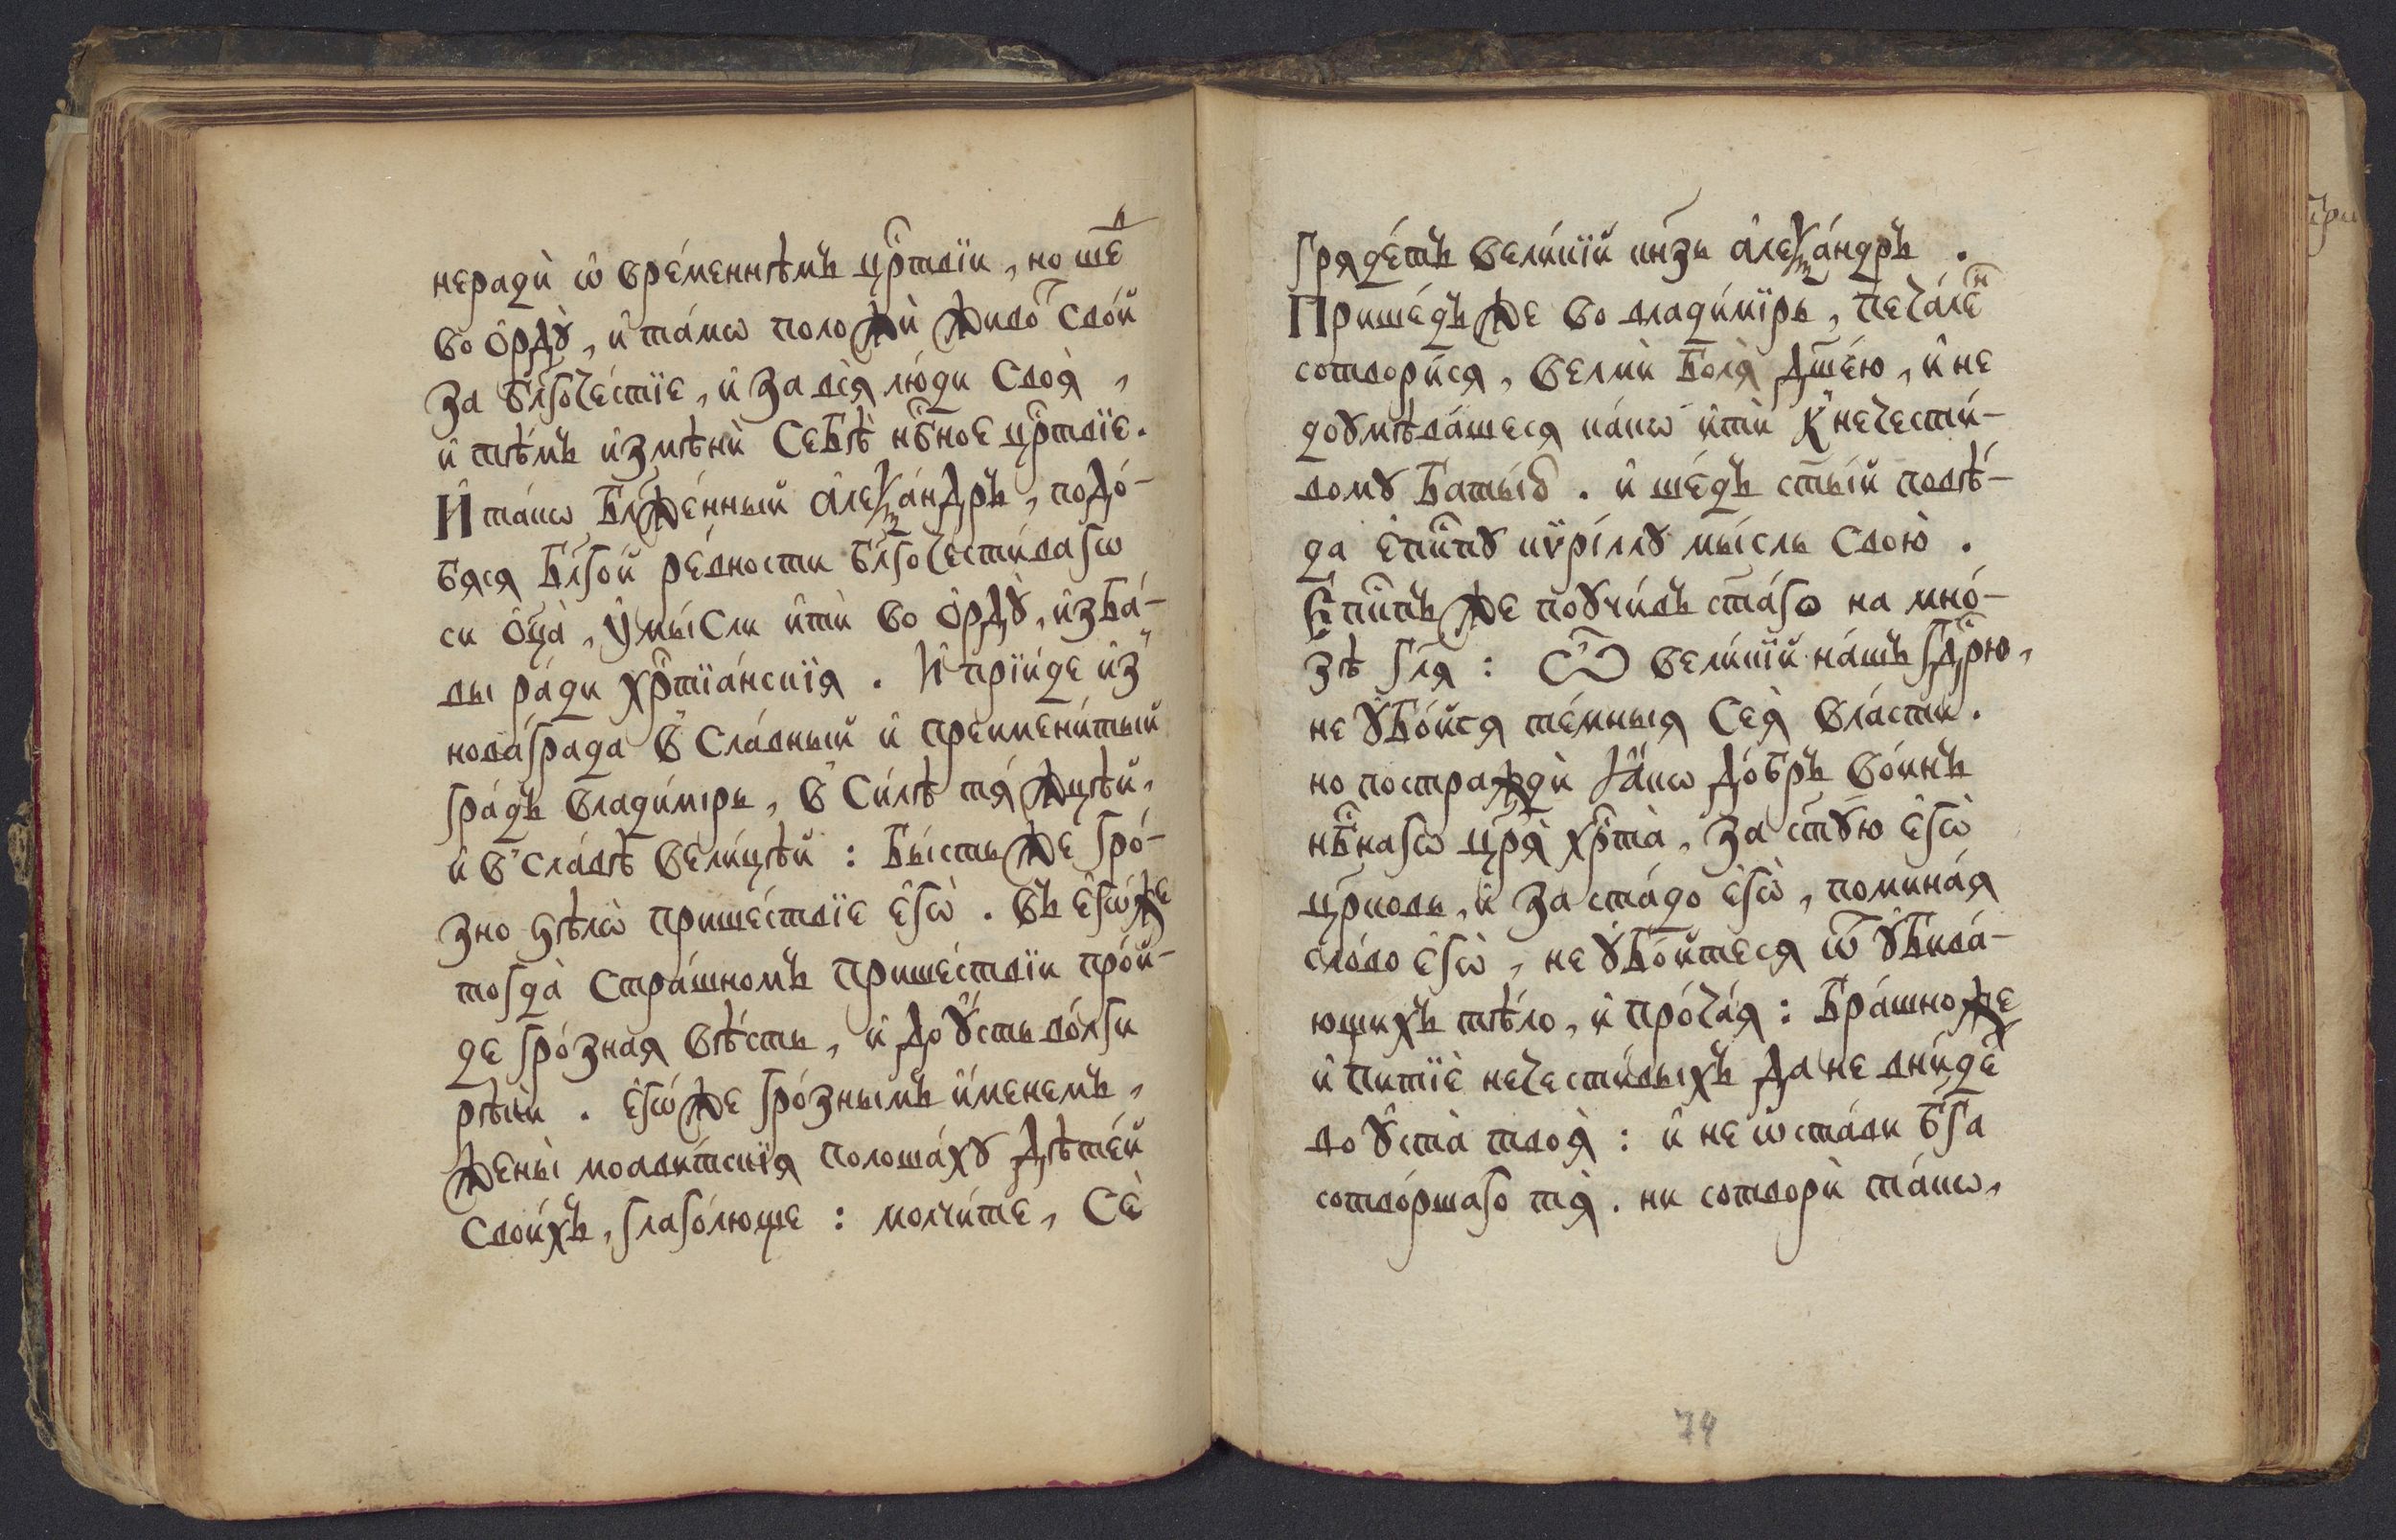 нерадѝ ѡ҆ вре́меннѣмъ цр҇твїи, но ше́д
во ѻ҆рдꙋ̀, и҆ та́мѡ положѝ живо́т сво́й
за бл҃гоче́стїе, и҆ за всѧ̀ лю́ди своѧ̀,
и҆ тѣ́мъ и҆змѣнѝ себѣ̀ нб҇ное цр҇твїе.
И҆ та́кѡ бл҃же́нный а҆леѯа́ндръ, подо́-
бяся бл҃го́й ре́вности бл҃гочести́вагѡ
си ѻ҆ц҃а̀, ᲂу҆мы́сли и҆тѝ во ѻ҆рдꙋ̀, и҆зба́-
вы ра́ди хр҇тїа́нскїя. И҆ прїи́де и҆з̾
нова́града в̾ сла́вный и҆ преимени́тый
гра́дъ влади́мiръ, в̾ си́лѣ тя́жцѣй,
и҆ в̾ сла́вѣ вели́цѣй: Бы́сть же гро́-
зно ѕѣлѡ̀ прише́ствїе є҆гѡ̀. въ є҆гѡ́же
тогда̀ стра́шномъ прише́ствїи про́й-
де гро́зная вѣ́сть, и҆ до ꙋ҆́сть во́лги
рѣкѝ. є҆гѡ́же гро́знымъ и҆́менемъ,
жены̀ моави́тскїя полоша́хꙋ дѣте́й
свои́хъ, глаго́люще: молчи́те, сѐ
гряде́тъ вели́кїй кн҃зь а҆леѯа́ндръ.
Прише́дъ же во влади́мїръ, печа́лен
сотвори́ся, велмѝ боля̀ дш҃е́ю, и҆ не
доꙋмѣва́шеся ка́кѡ и҆тѝ к̾ нечести́-
вомꙋ баты́ю. и҆ ше́дъ ст҃ы́й повѣ́-
да є҆пи҇пꙋ кѵрі́ллꙋ мы́сль свою̀.
Є҆пи҇пъ же поꙋчи́въ ст҃а́го на мно́-
зѣ гл҃я: Ѽ вели́кїй на́шъ гд҇рю,
не ꙋ҆бо́йся те́мныя сея̀ вла́сти.
но постраждѝ ꙗ҆́кѡ до́бръ во́инъ
нб҇нагѡ цр҃ѧ̀ хр҇та̀, за ст҃ꙋ́ю є҆гѡ̀
цр҃ковь, и҆ за ста́до є҆гѡ̀, помина́я
сло́во є҆гѡ̀, не ꙋ҆бо́йтеся ѿ ꙋ҆бива́-
ющихъ тѣ́ло, и҆ про́чая: Бра́шно же
и҆ питїѐ нечести́выхъ да не вни́дет
во ꙋ҆ста̀ твоя̀: и҆ не ѡ҆ста́ви бг҃а
сотво́ршаго тя̀. ни сотворѝ та́кѡ,
74